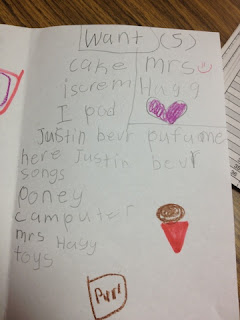 Want(s)
cake mrs
iscrem Hagg
I pod
Justin bevr pufume
here Justin bevr
songs
poney
camputer
mrs Hagg
toys